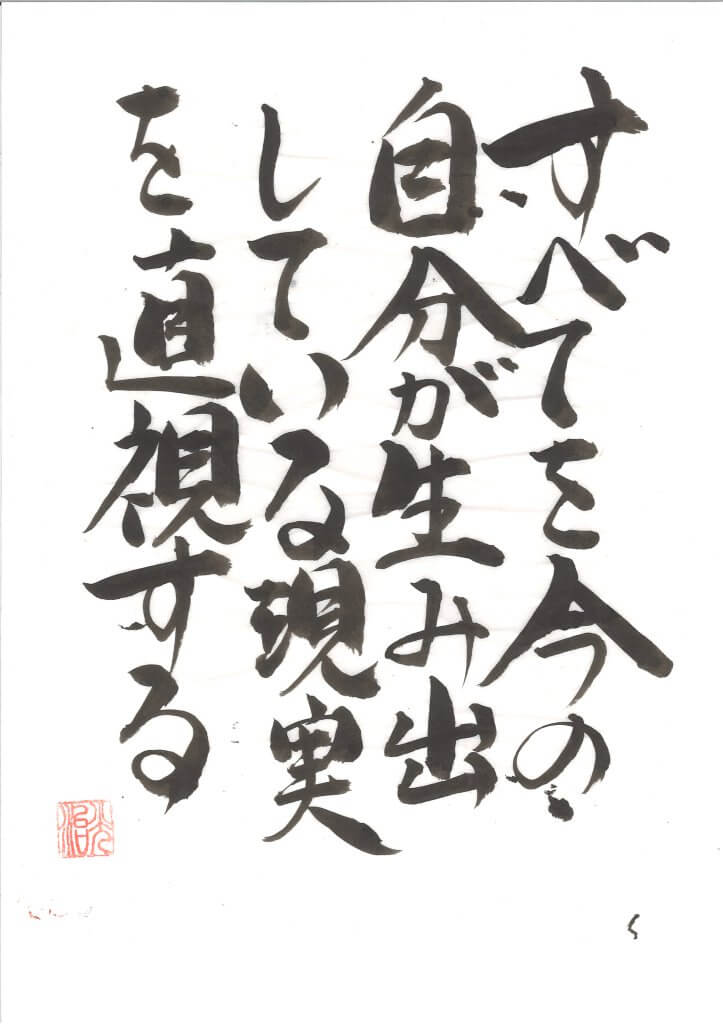 すべてを今の
自分が生み出
している現実
を直視する